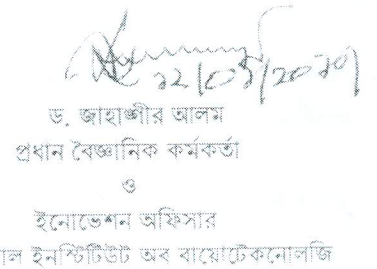 ড. জাহাঙ্গীর আলম
প্রধান বৈজ্ঞানিক কর্মকর্তা
ও
ইনোভেশন অফিসার
াল ইনস্টিটিউট অব বায়োটেকনোলজি